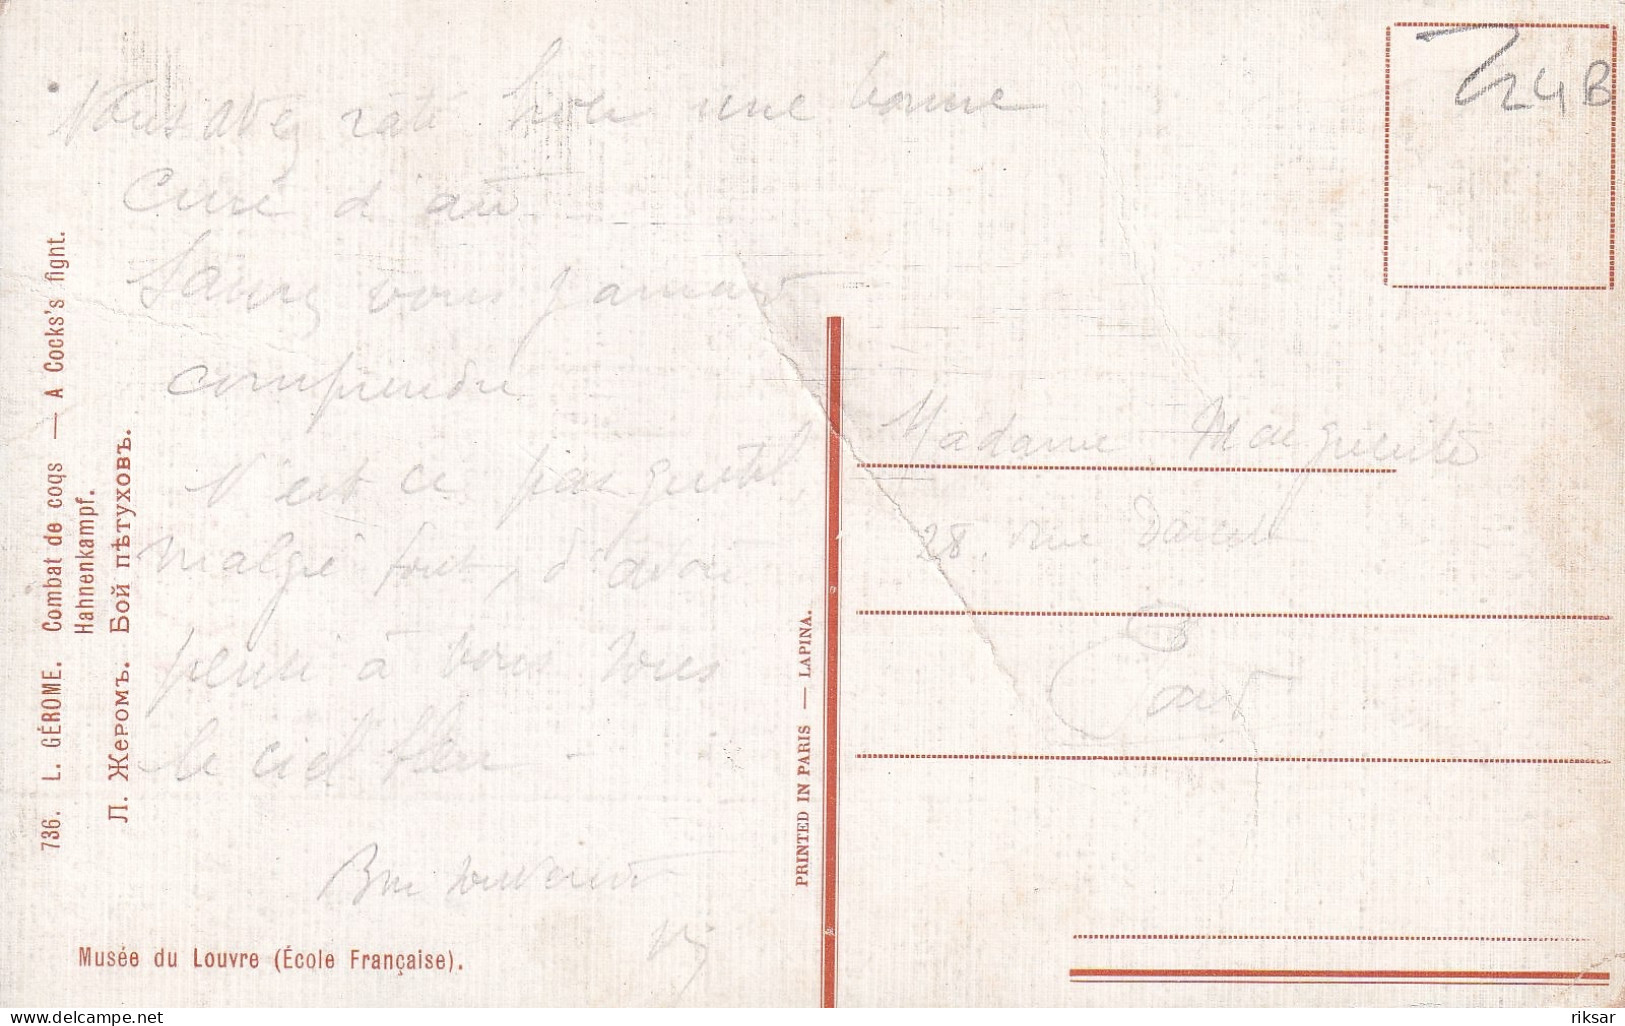 Vous avez raté hier une bonne
cure d'air
Saurez vous jamais
comprendre
N'est ce pas gentil,
malgré tout, d'avoir
pensé à vous sous
le ciel bleu -
Bon souvenir
Madame Marguerite
28 rue Darcet
Paris
724B
736. L. GÉROME. Combat de coqs — A Cocks's fight.
Hahnenkampf.
Л. Жеромъ. Бой пѣтуховъ.
PRINTED IN PARIS — LAPINA.
Musée du Louvre (École Française).
delcampe.net
riksar